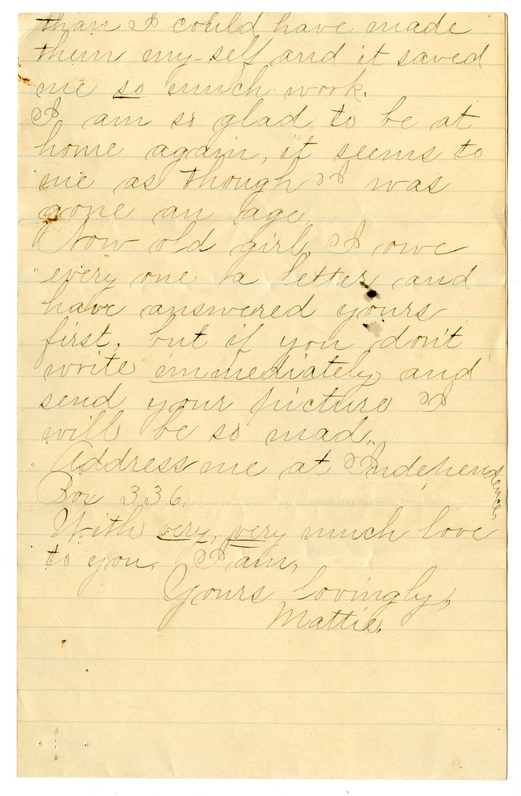 than I could have made
them my-self and it saved
me so much work.
I am so glad to be at
home again, it seems to
me as though I was
gone an age.
Now old girl, I owe
every one a letter and
have answered yours
first, but if you don't
write immediately and
send your picture I
will be so mad.
Address me at Independence
Box 336.
With very, very much love
to you. I am,
Yours lovingly,
Mattie.